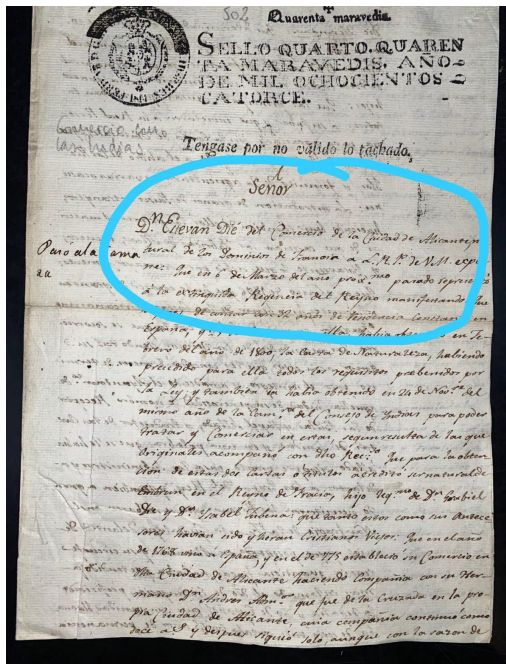 502
Quarenta maravedis.
SELLO QUARTO. QUAREN
TA MARAVEDIS. AÑO
DE MIL OCHOCIENTOS
CATORCE.
Comercio con
las Indias
Tengase por no válido lo tachado.
Señor
Dn. Estevan Dié del Comercio de la Ciudad de Alicante, na
tural de los Dominios de Francia a L. R. P. de V.M. expo
ne: Que en 6 de Marzo del año proxmo. pasado representó
Pasó a la Cama
ra
a la extinguida Regencia del Reyno manifestando que
despues de contar con 32 años de residencia constante en
España, y en
brero del año de 1800, la Carta de Naturaleza, habiendo
precedido para ella todos los requisitos prebenidos por
la Ley, y tambien la habia obtenido en 24 de Novre. del
mismo año de la Camra. del Consejo de Indias para poder
tratar y Comerciar en estas, segun resulta de las que
originales acompañó con dho Recso. Que para la obten
cion de estas dos cartas o titulos acreditó ser natural de
Embrun en el Reyno de Francia, hijo legmo. de Dn.
Dié y Da. Ysabel que tanto estos como sus Antece
sores havian sido y heran Cristianos Viejos: Que en el año
de 1768 vino a España, y en el de 775 establecio su Comercio en
dha Ciudad de Alicante haciendo compañia con su Her
mano Dn. Andres que fue de la Cruzada en la pro
pia Ciudad de Alicante, cuia compañia continuó como
doce as. y despues siguió solo, aunque con la razon de